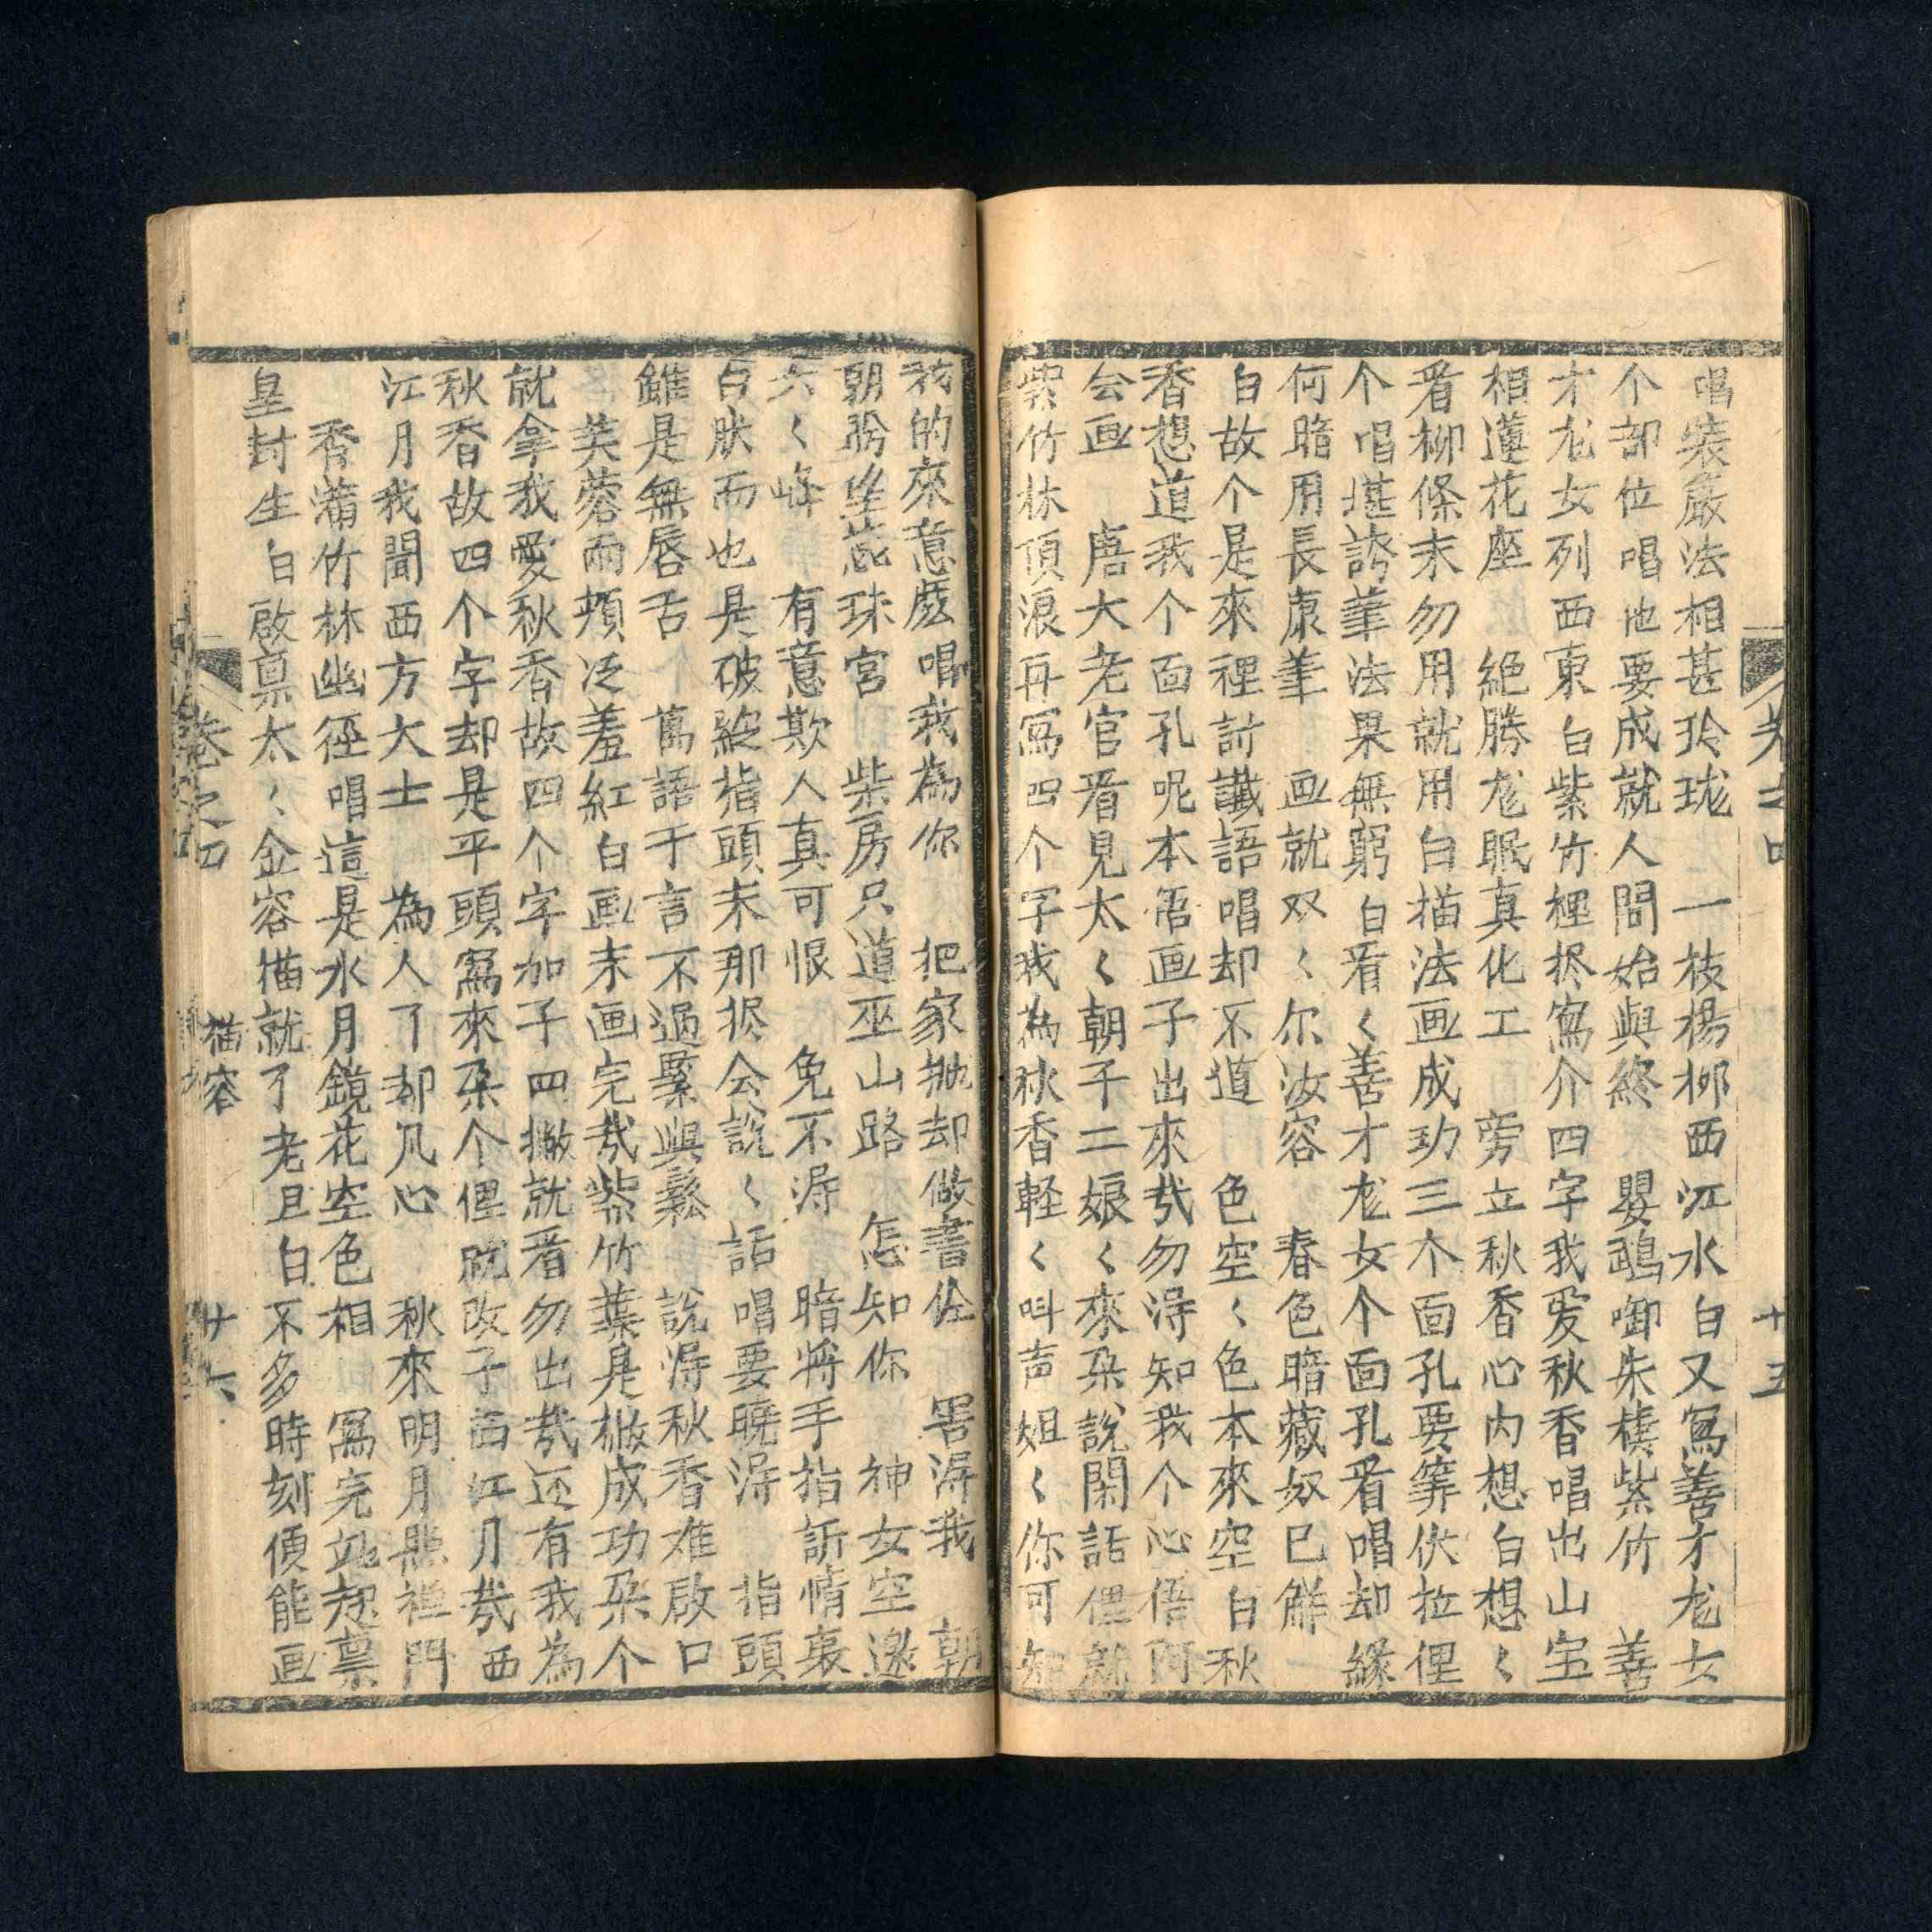 卷之四 十五
唱裝嚴法相甚玲珑 一枝楊柳西江水白又寫善才尨女
个部位唱他要成就人間始與終 嬰鵡啣朱樓紫竹 善
才尨女列西東白紫竹裡拆寫介四字我爱秋香唱出山宝
相蓮花座 絕勝尨眠真化工 旁立秋香心内想白想〱
看柳條末勿用就用白描法画成功三个面孔要筭伏拉俚
个唱堪誇筆法果無窮白看〱善才尨女个面孔看唱却緣
何暗用長康筆 画就双〱尔汝容 春色暗藏奴已觧
白故个是來裡討讖語唱却不道 色空〱色本來空白秋
香想道我个面孔呢本俉画子出來哉勿淂知我个心俉阿
会画 唐大老官看見太〱朝千二娘〱來朶說閑話俚就
紫竹林頂浪再寫四个字我為秋香軽〱呌声姐〱你可知
我的來意麽唱我為你 把家抛却做書佐 害淂我 朝
朝盻望蕊珠宮 柴房只道巫山路 怎知你 神女空邀
六〱峰 有意欺人真可恨 免不淂 暗將手指訴情衷
白肽而也是破綻指頭末那拆会說〱話唱要曉淂 指頭
雖是無唇舌 萬語千言不過緊與鬆 說淂秋香难啟口
芙蓉両頰泛羞紅白画末画完哉紫竹葉是撇成功朶个
就拿我愛秋香故四个字加子四撇就看勿出哉还有我為
秋香故四个字却是平頭寫來朶个俚就改子西江月哉西
江月我聞西方大士 為人了却凡心 秋來明月照禅門
香滿竹林幽徑唱這是水月鏡花空色相 寫完立起禀
皇封生白啟禀太〱金容描就了老旦白不多時刻便能画
卷之四 描容 廿六